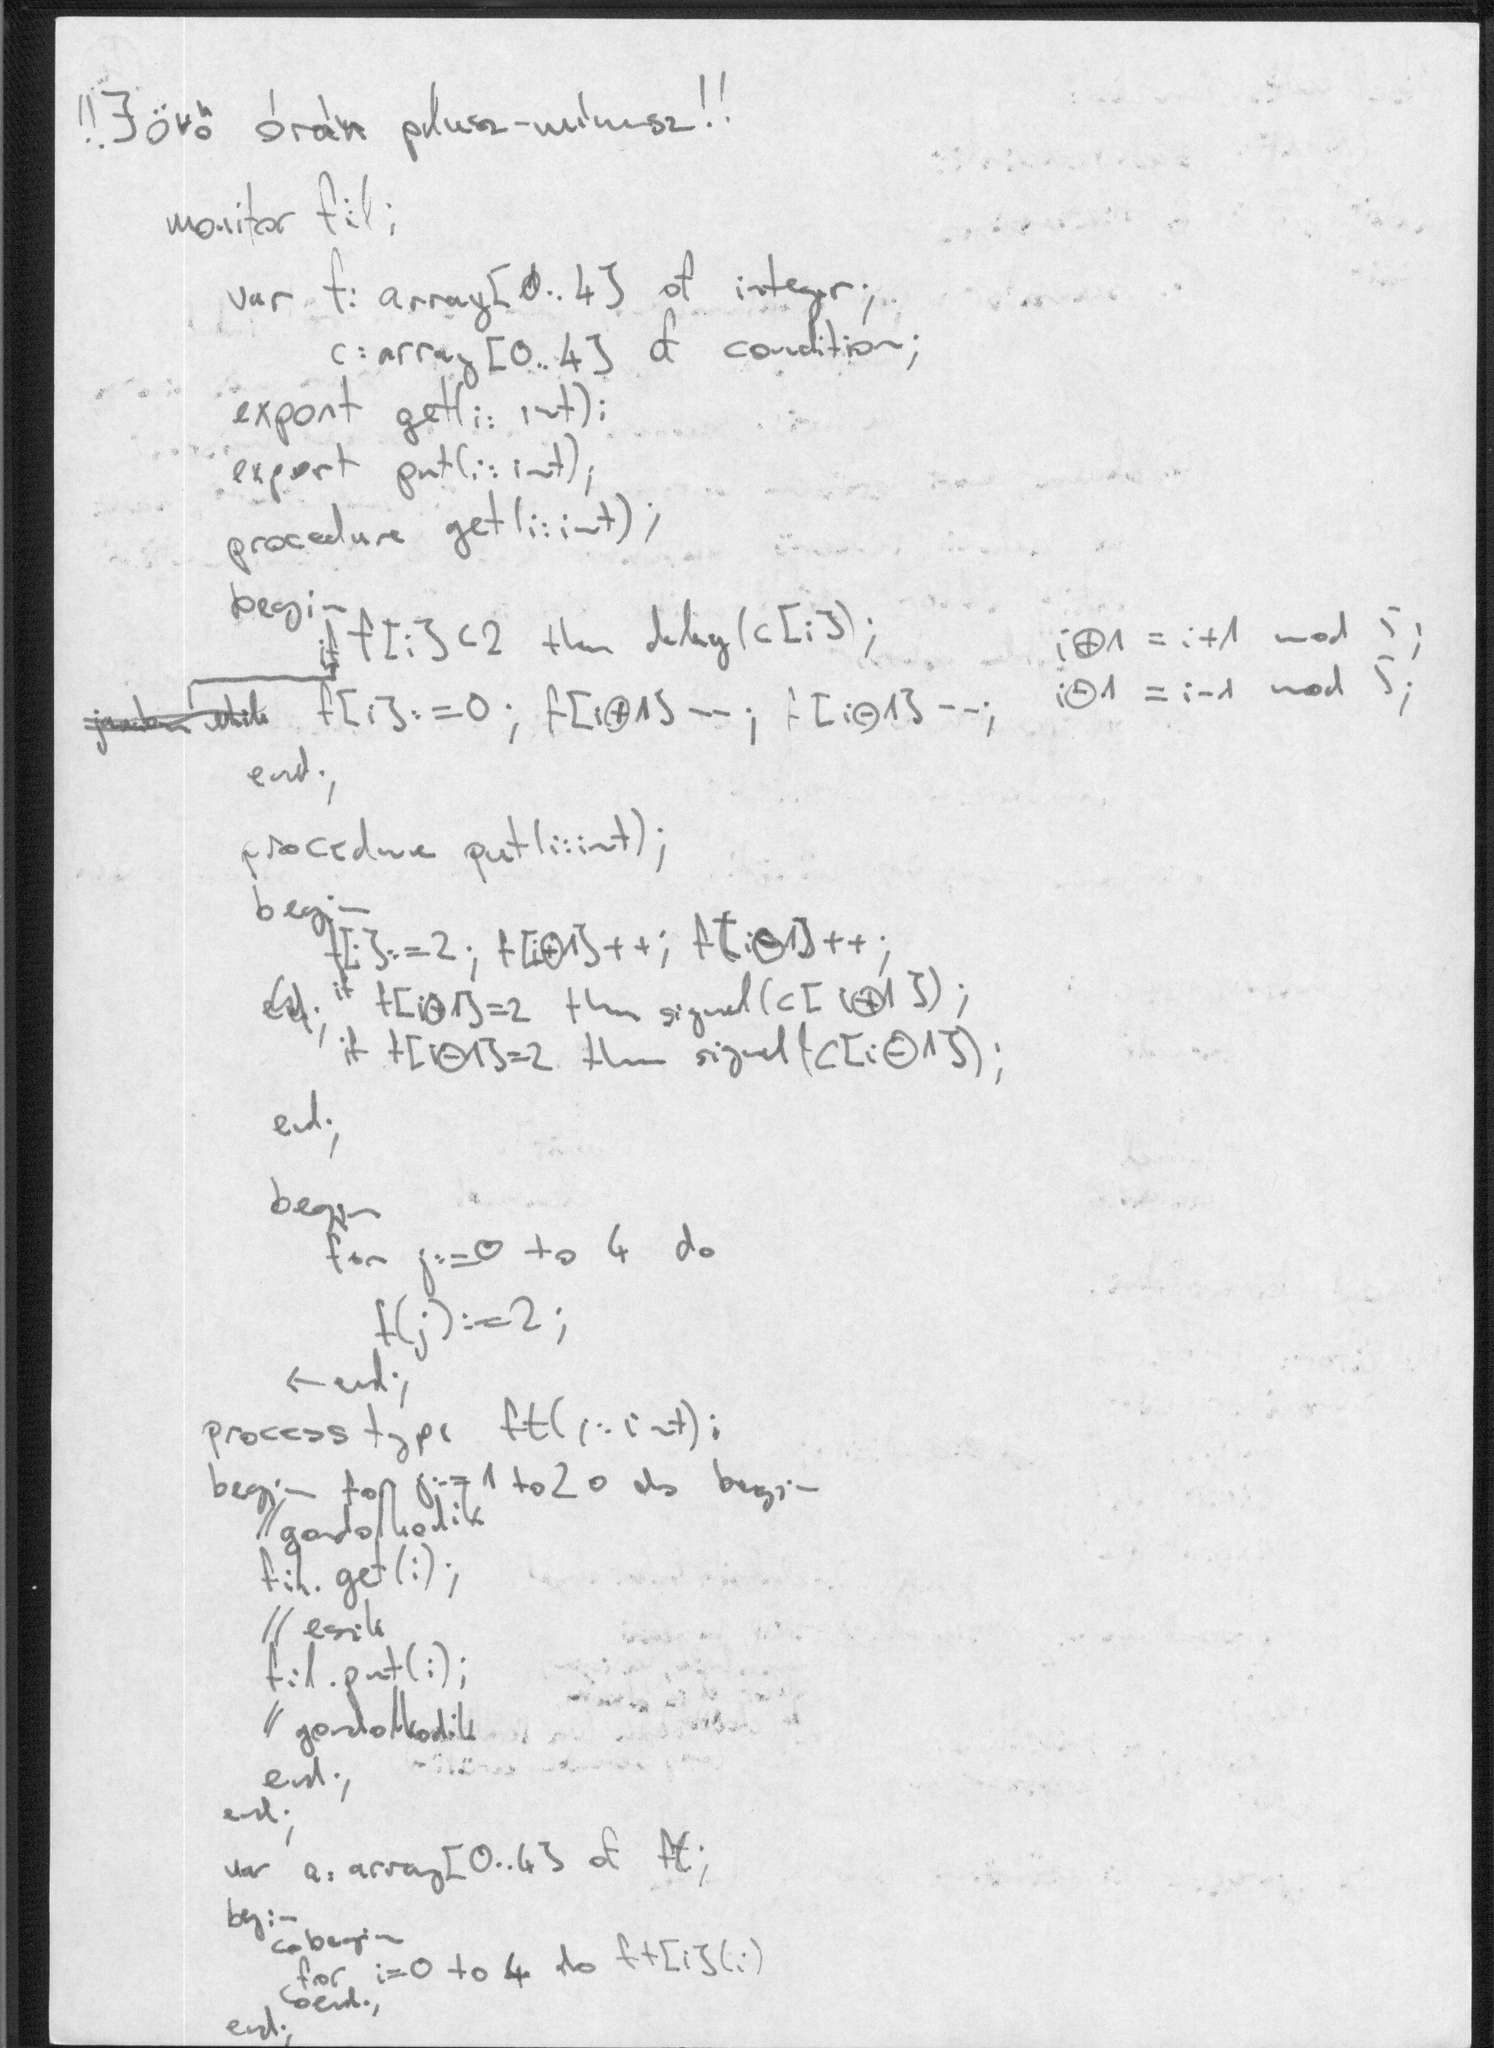 !!Jövő órán plusz-mínusz!!
monitor fil;
var f: array[0..4] of integer;
c: array[0..4] of condition;
export get(i: int);
export put(i: int);
procedure get(i: int);
begin
if f[i]<2 then delay(c[i]);
i⊕1 = i+1 mod 5;
f[i]:=0; f[i⊕1]--; f[i⊖1]--;
i⊖1 = i-1 mod 5;
end;
procedure put(i:int);
begin
f[i]:=2; f[i⊕1]++; f[i⊖1]++;
if f[i⊕1]=2 then signal(c[i⊕1]);
if f[i⊖1]=2 then signal(c[i⊖1]);
end;
begin
for j:=0 to 4 do
f(j):=2;
← end;
process type ft(i: int);
begin for j:=1 to 20 do begin
//gondolkodik
fil.get(i);
// eszik
fil.put(i);
// gondolkodik
end;
end;
var a: array[0..4] of ft;
begin
cobegin
for i=0 to 4 do ft[i](i)
coend;
end;